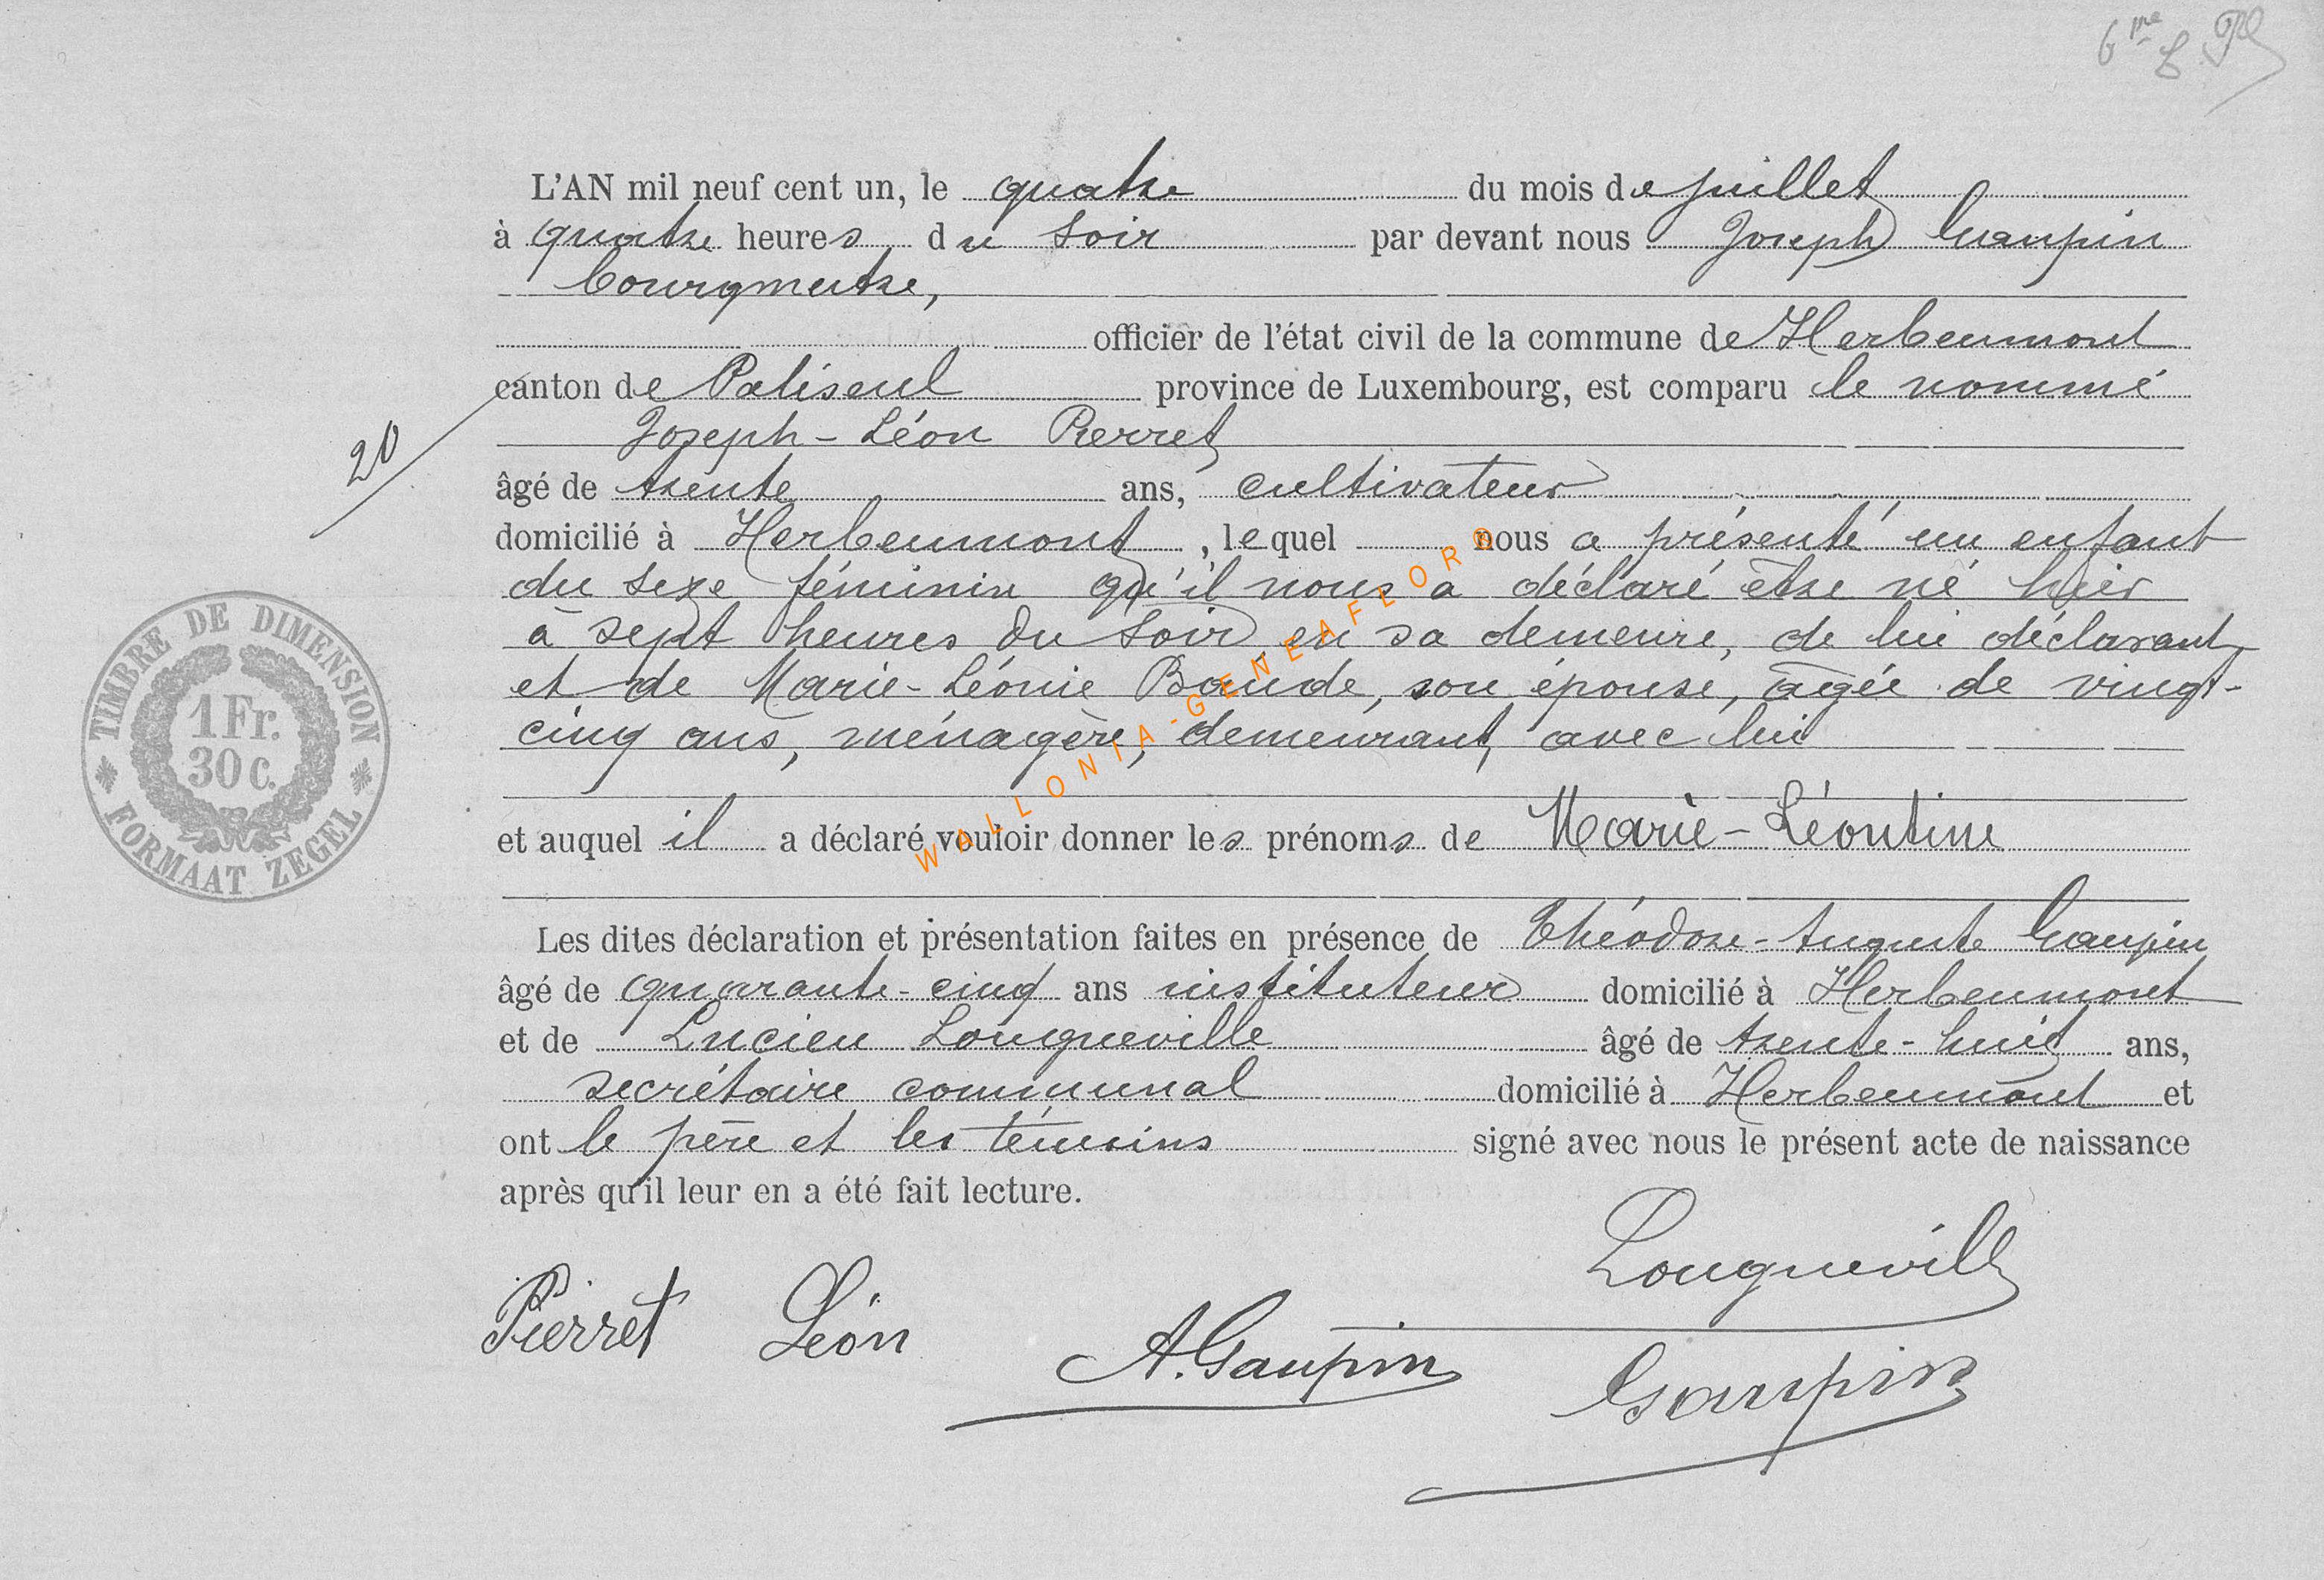 6me
L'AN mil neuf cent un, le quatre du mois de juillet
à quatre heures du soir par devant nous Joseph Gaupin
bourgmestre,
officier de l'état civil de la commune de Herbeumont
canton de Paliseul province de Luxembourg, est comparu le nommé
Joseph-Léon Pierret
20
âgé de trente ans, cultivateur
domicilié à Herbeumont, lequel nous a présenté un enfant
du sexe féminin qu'il nous a déclaré être né hier
à sept heures du soir, en sa demeure, de lui déclarant
et de Marie-Léonie Baude, son épouse, âgée de vingt-
cinq ans, ménagère, demeurant avec lui
et auquel il a déclaré vouloir donner les prénoms de Marie-Léontine
Les dites déclaration et présentation faites en présence de Théodore-Auguste Gaupin
âgé de quarante-cinq ans instituteur domicilié à Herbeumont
et de Lucien Longueville âgé de trente-huit ans,
secrétaire communal domicilié à Herbeumont et
ont le père et les témoins signé avec nous le présent acte de naissance
après qu'il leur en a été fait lecture.
Longueville
Pierret Léon
A. Gaupin
Gaupin
TIMBRE DE DIMENSION
1 Fr.
30 c.
FORMAAT ZEGEL
WALLONIA-GENEAFLORO